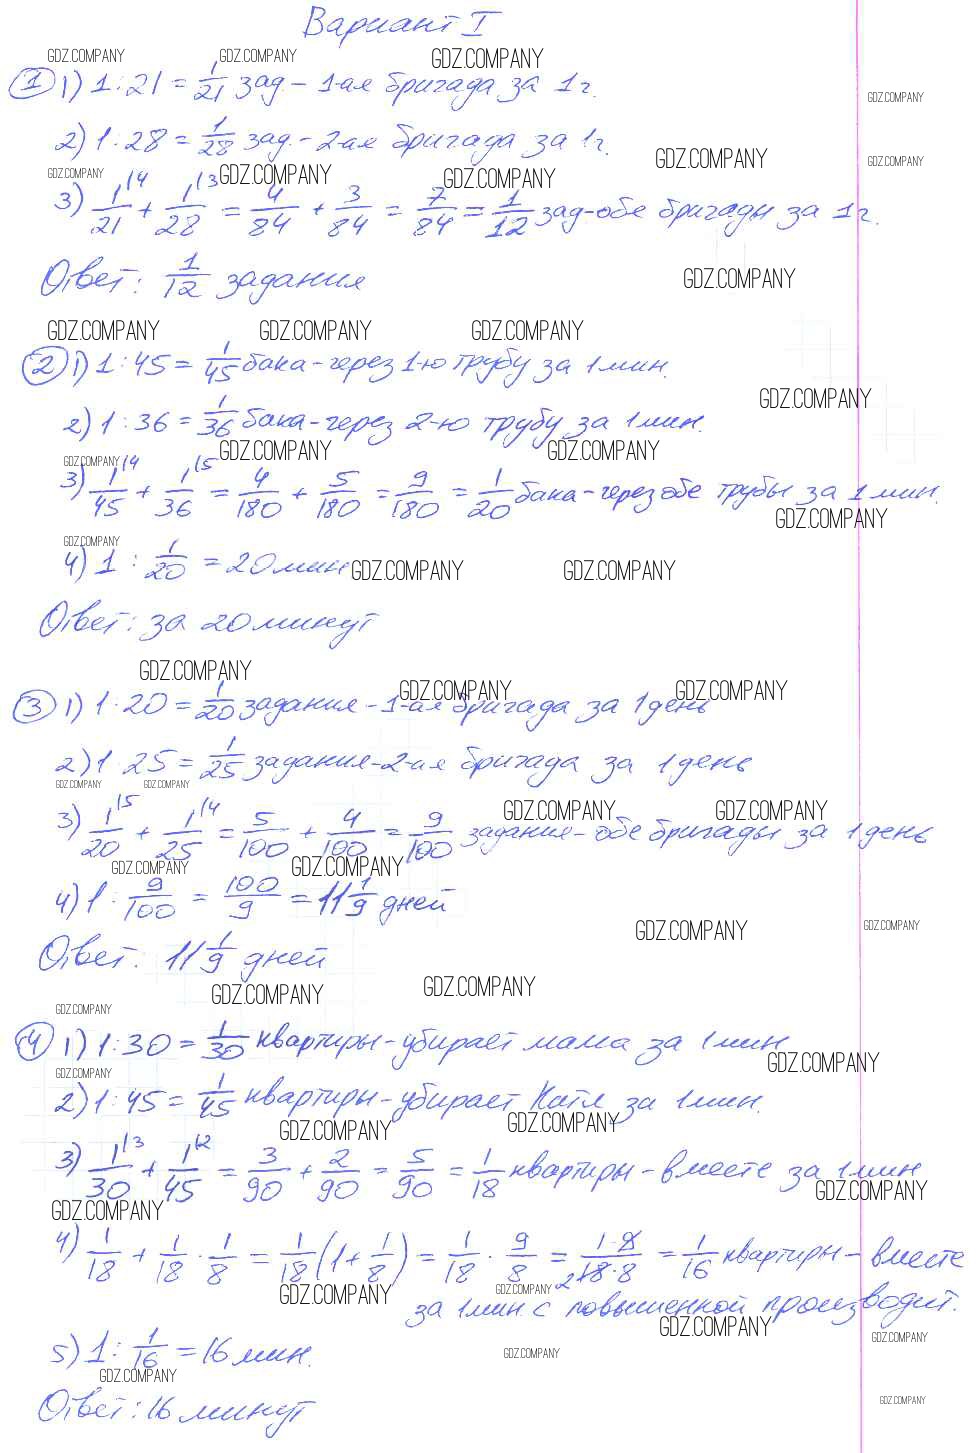 Вариант I
GDZ.COMPANY GDZ.COMPANY GDZ.COMPANY
① 1) 1 : 21 = 1/21 зад – 1-ая бригада за 1 ч.
GDZ.COMPANY
2) 1 : 28 = 1/28 зад. – 2-ая бригада за 1ч.
GDZ.COMPANY GDZ.COMPANY
GDZ.COMPANY GDZ.COMPANY GDZ.COMPANY
3) 1/21 \4 + 1/28 \3 = 4/84 + 3/84 = 7/84 = 1/12 зад-обе бригады за 1 ч.
Ответ: 1/12 задания
GDZ.COMPANY
GDZ.COMPANY GDZ.COMPANY GDZ.COMPANY
② 1) 1 : 45 = 1/45 бака – через 1-ю трубу за 1 мин.
GDZ.COMPANY
2) 1 : 36 = 1/36 бака – через 2-ю трубу за 1 мин.
GDZ.COMPANY GDZ.COMPANY GDZ.COMPANY
3) 1/45 \4 + 1/36 \5 = 4/180 + 5/180 = 9/180 = 1/20 бака – через обе трубы за 1 мин.
GDZ.COMPANY
GDZ.COMPANY
4) 1 : 1/20 = 20 мин
GDZ.COMPANY GDZ.COMPANY
Ответ: за 20 минут
GDZ.COMPANY GDZ.COMPANY GDZ.COMPANY
③ 1) 1 : 20 = 1/20 задания – 1-ая бригада за 1 день
2) 1 : 25 = 1/25 задания – 2-ая бригада за 1 день
GDZ.COMPANY GDZ.COMPANY GDZ.COMPANY GDZ.COMPANY
3) 1/20 \5 + 1/25 \4 = 5/100 + 4/100 = 9/100 задания – обе бригады за 1 день
GDZ.COMPANY GDZ.COMPANY
4) 1 : 9/100 = 100/9 = 11 1/9 дней
GDZ.COMPANY GDZ.COMPANY
Ответ: 11 1/9 дней
GDZ.COMPANY GDZ.COMPANY
GDZ.COMPANY
④ 1) 1 : 30 = 1/30 квартиры – убирает мама за 1 мин
GDZ.COMPANY
GDZ.COMPANY
2) 1 : 45 = 1/45 квартиры – убирает Катя за 1 мин.
GDZ.COMPANY GDZ.COMPANY
3) 1/30 \3 + 1/45 \2 = 3/90 + 2/90 = 5/90 = 1/18 квартиры – вместе за 1 мин
GDZ.COMPANY
GDZ.COMPANY
4) 1/18 + 1/18 · 1/8 = 1/18 (1 + 1/8) = 1/18 · 9/8 = 1·9/18·8 2 = 1/16 квартиры – вместе
GDZ.COMPANY GDZ.COMPANY
за 1 мин. с повышенной производит.
GDZ.COMPANY GDZ.COMPANY
5) 1 : 1/16 = 16 мин.
GDZ.COMPANY GDZ.COMPANY
Ответ: 16 минут
GDZ.COMPANY